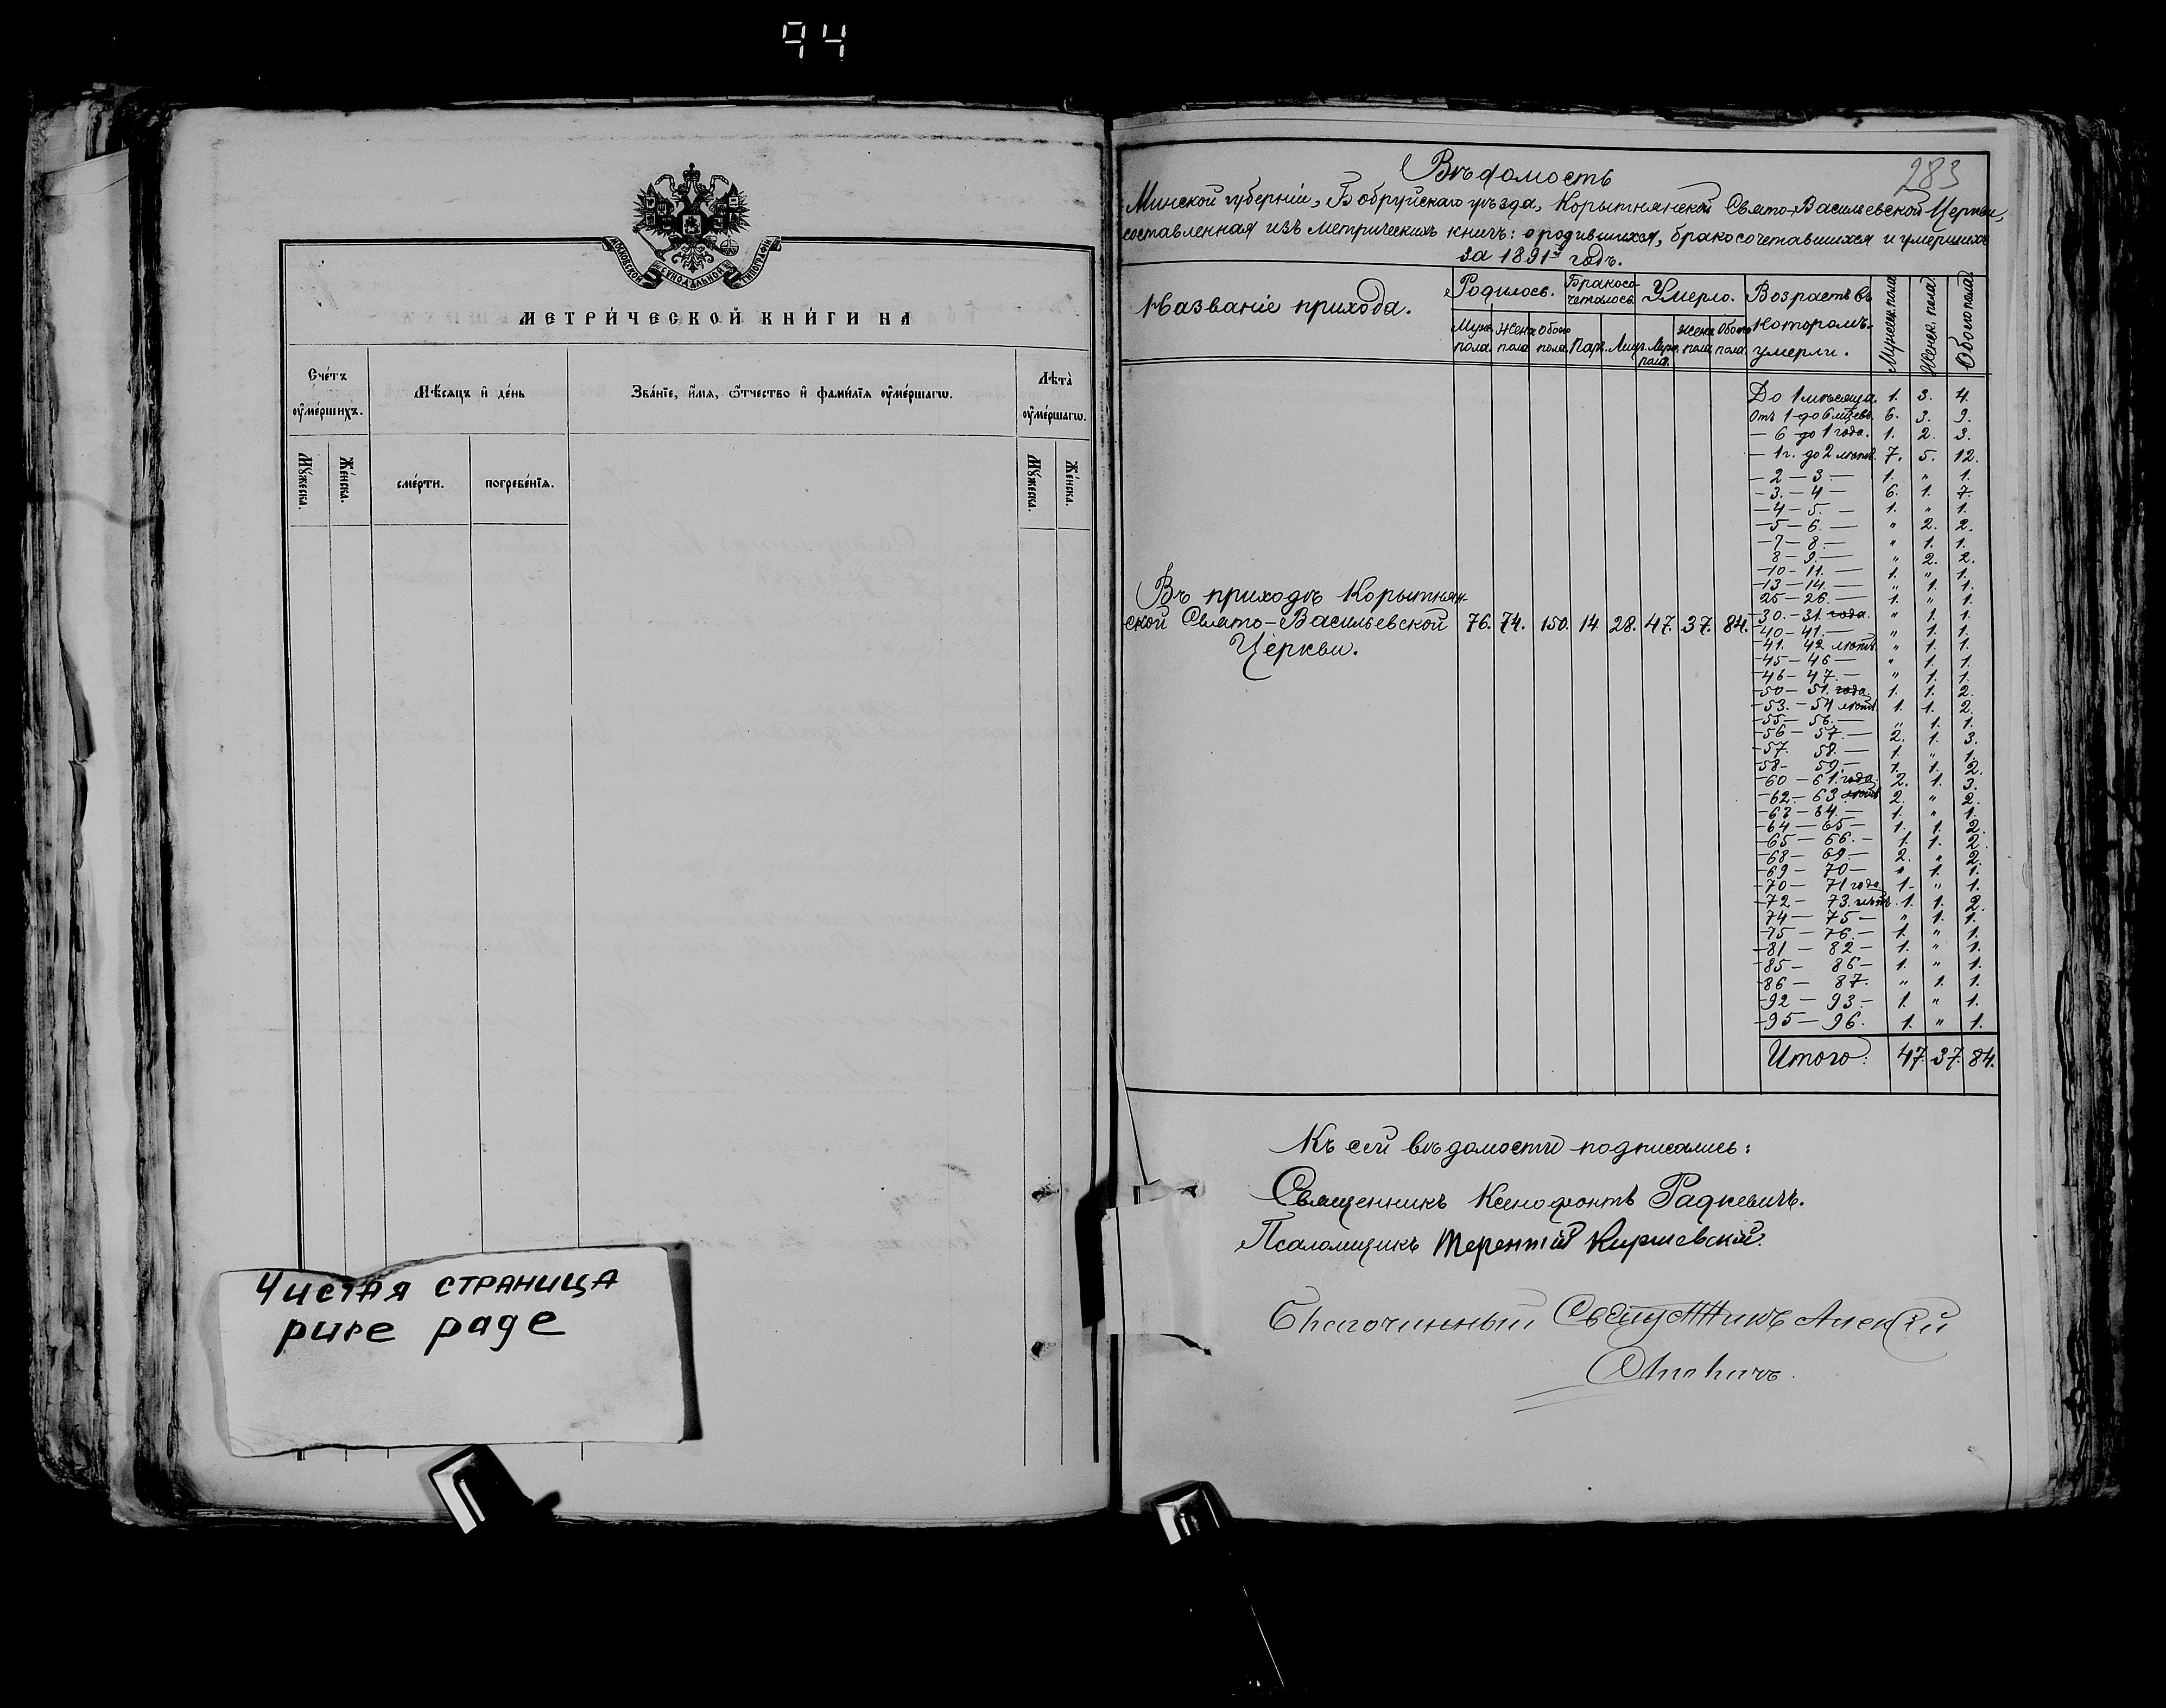 94
МОСКОВСКОЙ СУНОДАЛЬНОЙ ТИПОГРАФІИ
МЕТРИ́ЧЕСКОЙ КНИ́ГИ НА
Счéтъ ᲂу҆ме́ршихъ.
Мѣ́сяцъ и҆ де́нь
Зва́нїе, и҆́мя, ѿ́чество и҆ фами́лїя ᲂу҆ме́ршагѡ.
Лѣ́та ᲂу҆ме́ршагѡ.
Му́жеска.
Же́нска.
сме́рти.
погребе́нїя.
Му́жеска.
Же́нска.
Чистая страница
pure page
283
Вѣдомость
Минской губерніи, Бобруйскаго уѣзда, Корытнянской Свято-Васильевской Церкви,
составленная изъ метрическихъ книгъ: о родившихся, бракосочетавшихся и умершихъ
за 1891й годъ.
Названіе прихода.
Родилось.
Бракосо-
четалось
Умерло.
Возрастъ въ
которомъ
умерли.
Мужеск. пола
Женск. пола.
Обоего пола.
Муж. пола.
Жен. пола
Обоего пола.
Паръ.
Лицъ.
Муж. пола.
Женс. пола.
Обоего пола.
Въ приходѣ Корытнян-
ской Свято-Васильевской 76. 74. 150. 14 28. 47. 37. 84.
Церкви.
До 1 мѣсяца. 1. 3. 4.
Отъ 1 до 6 мцевъ 6. 3. 9.
— 6 до 1 года. 1. 2. 3.
— 1 г. до 2 лѣтъ 7. 5. 12.
— 2 — 3 — 1. " 1.
— 3. — 4 — 6. 1. 7.
— 4 — 5. — 1. " 1.
— 5 — 6. — " 2. 2.
— 7 — 8. — " 1. 1.
8 — 9. — " 2. 2.
— 10 — 11. — 1. " 1.
— 13 — 14. — " 1. 1.
25 — 26. — 1. " 1.
— 30. — 31. года. " 1. 1.
— 40 — 41. — " 1. 1.
— 41. 42 лѣтъ " 1. 1.
— 45 — 46 — " 1. 1.
— 46 — 47. — " 1. 1.
— 50 — 51. года. 1. 1. 2.
— 53. — 54 лѣтъ 1. 1. 2.
— 55 — 56. — " 1. 1.
— 56 — 57. — 2. 1. 3.
— 57. 58. — 1. " 1.
— 58 — 59. — 1. 1. 2.
— 60 — 61. года. 2. 1. 3.
— 62. — 63. лѣтъ 2. " 2.
— 63 — 64. — 1. " 1.
— 64 — 65 — 1. 1. 2.
— 65 — 66. — 1. 1. 2.
— 68 — 69. — 2. " 2.
— 69 — 70 — " 1. 1.
— 70 — 71 года. 1. " 1.
— 72 — 73. лѣтъ. 1. 1. 2.
74 — 75 — " 1. 1.
— 75 — 76. — 1. " 1.
— 81 — 82 — 1. " 1.
— 85 — 86 — 1. " 1.
— 86 — 87. " 1. 1.
— 92 — 93. — 1. " 1.
— 95 — 96. 1. " 1.
Итого: 47. 37. 84.
Къ сей вѣдомости подписались:
Священникъ Ксенофонтъ Радкевичъ.
Псаломщикъ Терентій Киршевскій.
Благочинный Священникъ Алексѣй